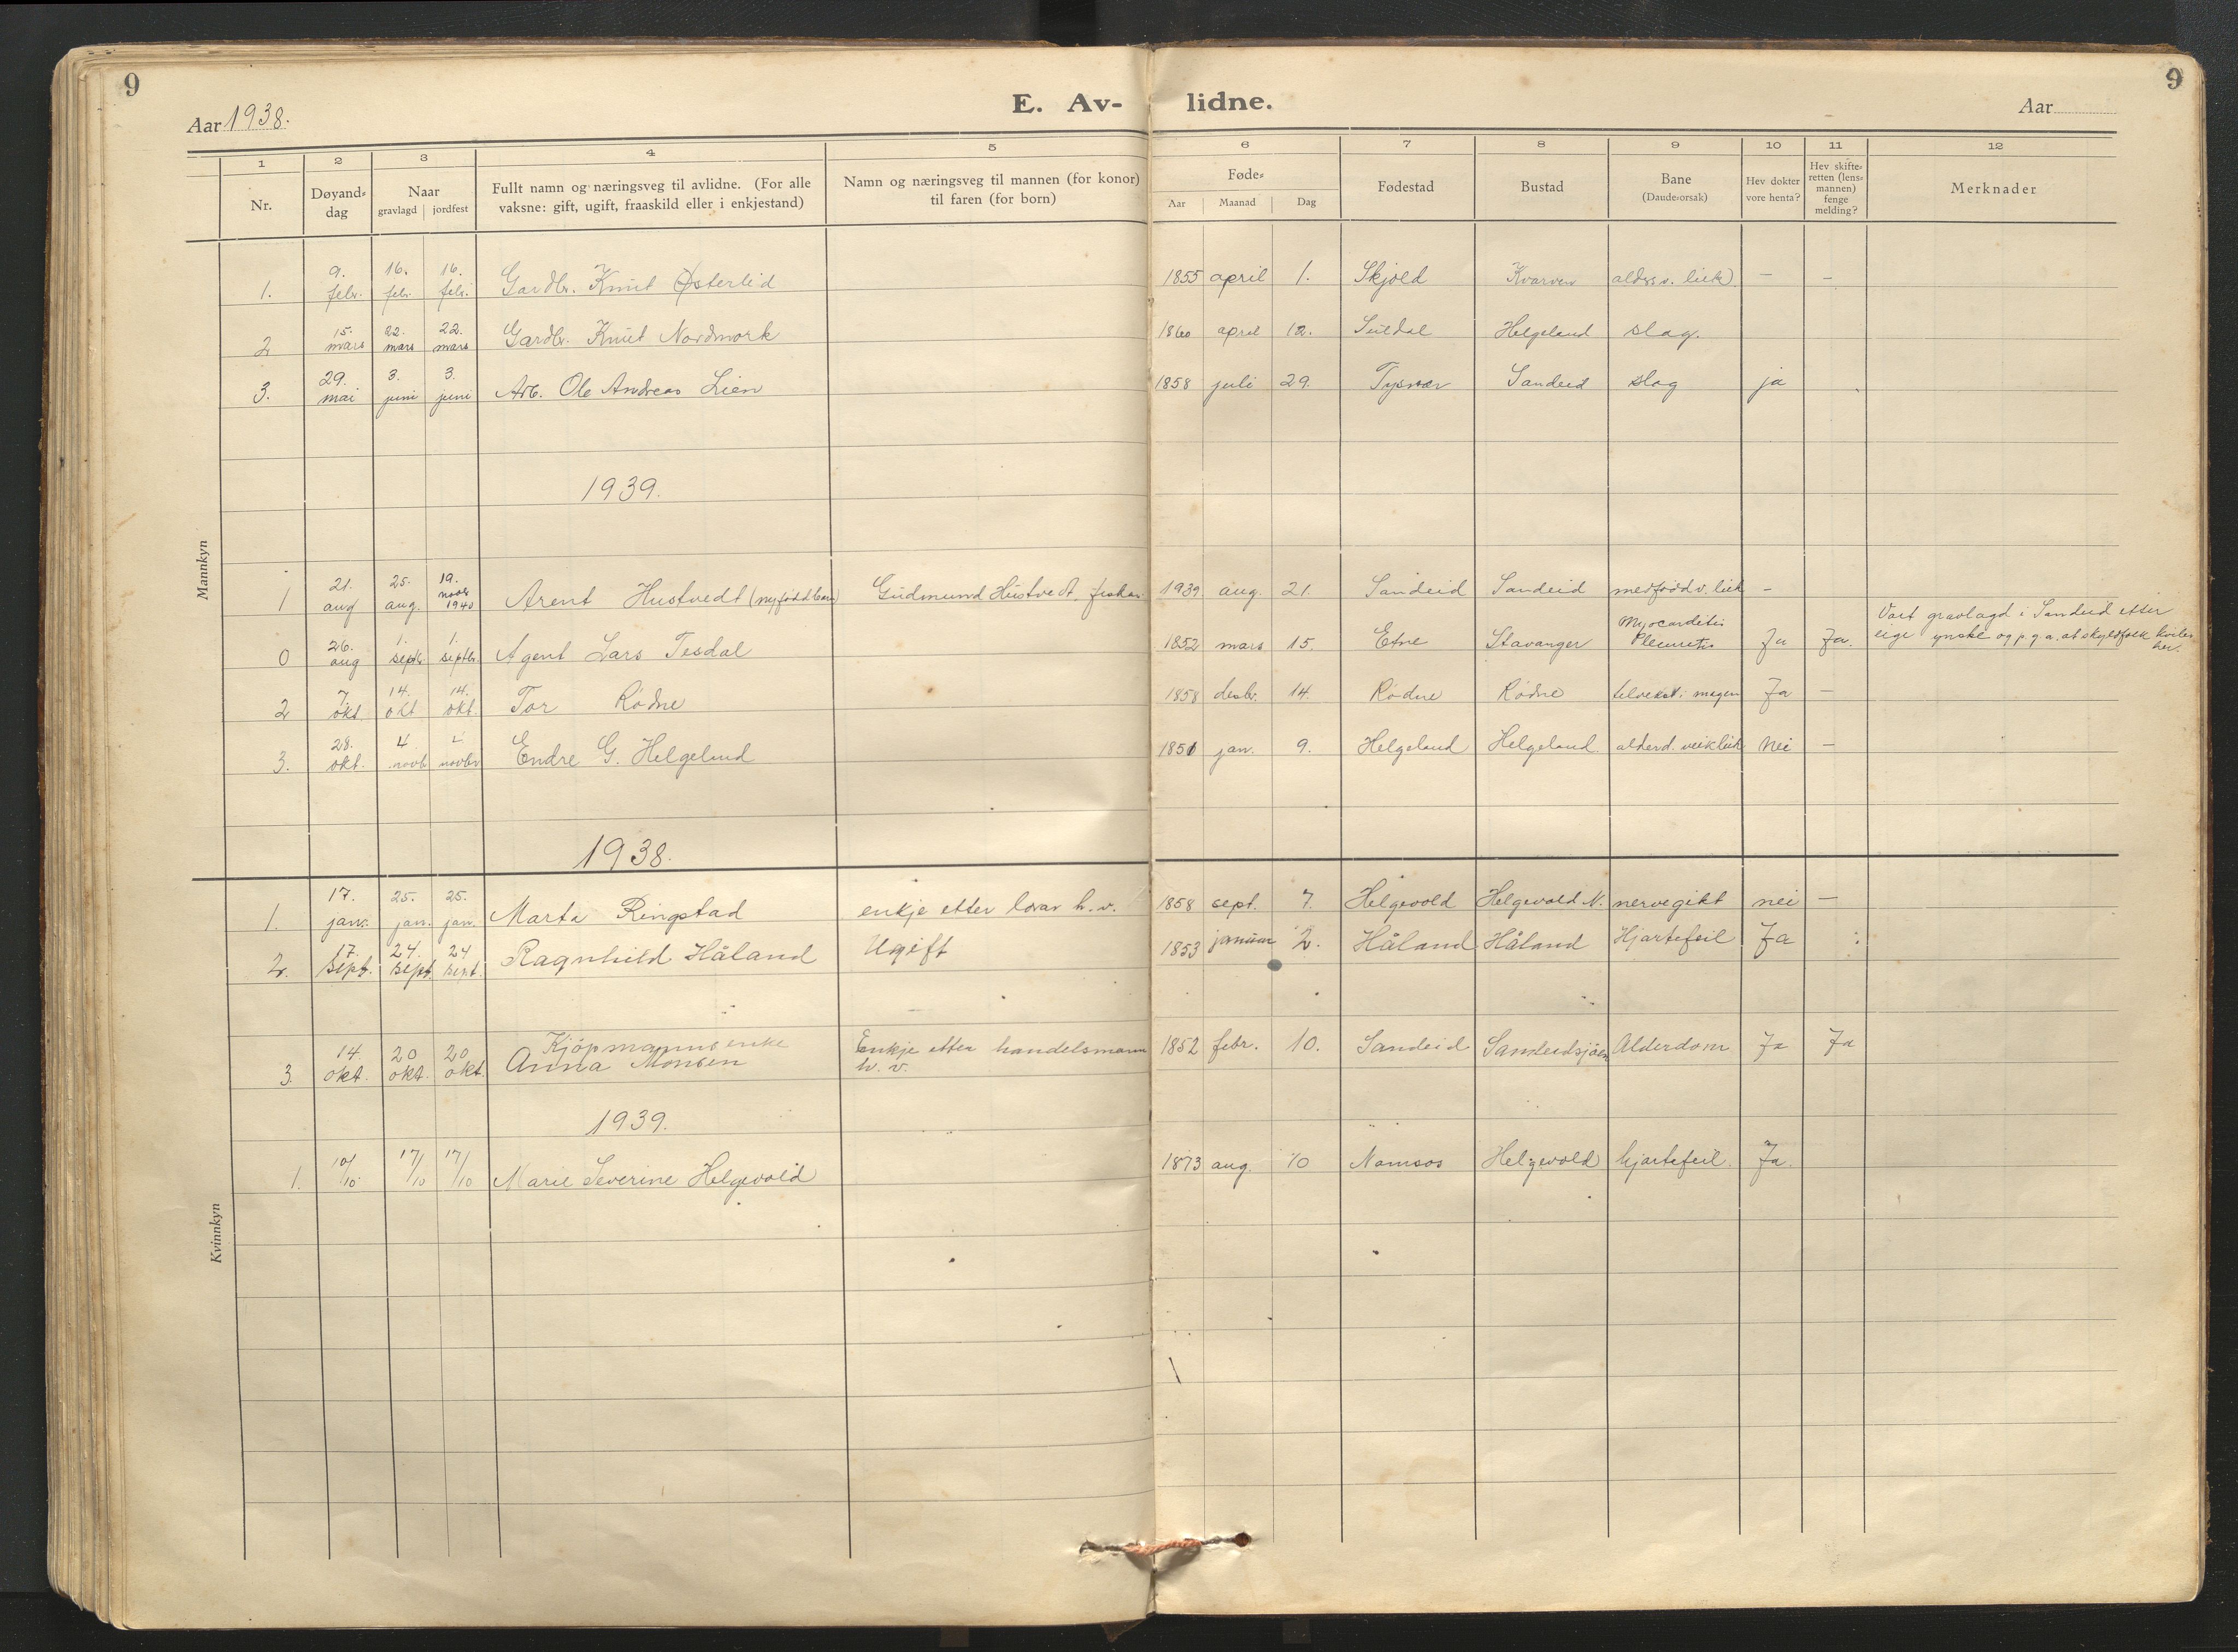 9
9
E. Av-
lidne.
Aar 1938.
Aar
1 2 3 4 5 6 7 8 9 10 11 12
Nr.
Døyand-
dag
Naar
gravlagd jordfest
Fullt namn og næringsveg til avlidne. (For alle
vaksne: gift, ugift, fraaskild eller i enkjestand)
Namn og næringsveg til mannen (for konor)
til faren (for born)
Føde-
Aar Maanad Dag
Fødestad
Bustad
Bane
(Daude-orsak)
Hev dokter
vore henta?
Hev skifte-
retten (lens-
mannen)
fenge
melding?
Merknader
Mannkyn
9. 16. 16.
1. febr. febr. febr. Gardbr. Knut Østerlid 1855 april 1. Skjold Kvarven alders v. leik — —
15. 22. 22.
2 mars mars mars Gardbr. Knut Nordmork 1860 april 12. Suldal Helgeland slag.
29. 3. 3.
3. mai juni juni Arb. Ole Andreas Lien 1858 juli 29. Tysvær Sandeid slag ja
1939.
21. 25. 19. novbr
1 aug aug. 1940 Arent Hustvedt (nyfødd barn) Gudmund Hustvedt, fiskar 1939 aug. 21. Sandeid Sandeid medfødd v. leik —
26. 1. 1. Myocarditis Vart gravlagd i Sandeid etter
0 aug septbr. septbr. Agent Lars Tesdal 1852 mars 15. Etne Stavanger Pleuritis Ja Ja. eige ynskje og p.g.a. at skyldfolk kviler
her.
7. 14. 14.
2 okt. okt okt. Tor Rødne 1858 desbr. 14. Rødne Rødne i magen Ja —
28. 4 4
3. okt. novb. novbr Endre G. Helgeland 1851 jan. 9. Helgeland Helgeland alderd. veikleik Nei —
1938.
17. 25. 25.
1. jan. jan. jan. Marta Ringstad enkje etter h. v. 1858 sept. 7. Helgevold Helgevold N. nervegikt nei —
17. 24. 24
2. sept. sept. sept. Ragnhild Håland Ugift 1853 januar 2. Håland Håland Hjartefeil Ja
14. 20 20 Kjøpmannsenke Enkje etter handelsmann
3. okt. okt. okt. Anna Monsen h. v. 1852 febr. 10. Sandeid Sandeidsjøen Alderdom Ja Ja
1939.
1. 10/10. 17/10 17/10 Marie Severine Helgevold 1873 aug. 10 Namsos Helgevold hjartefeil. Ja.
Kvinnkyn